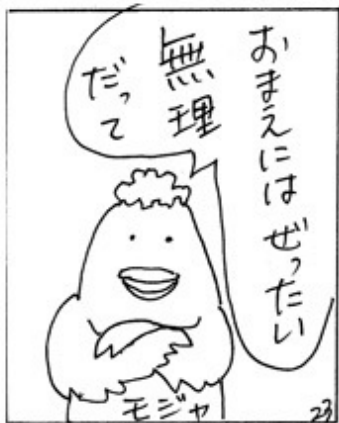 おまえには ぜったい
無理
だって
モジャ
23